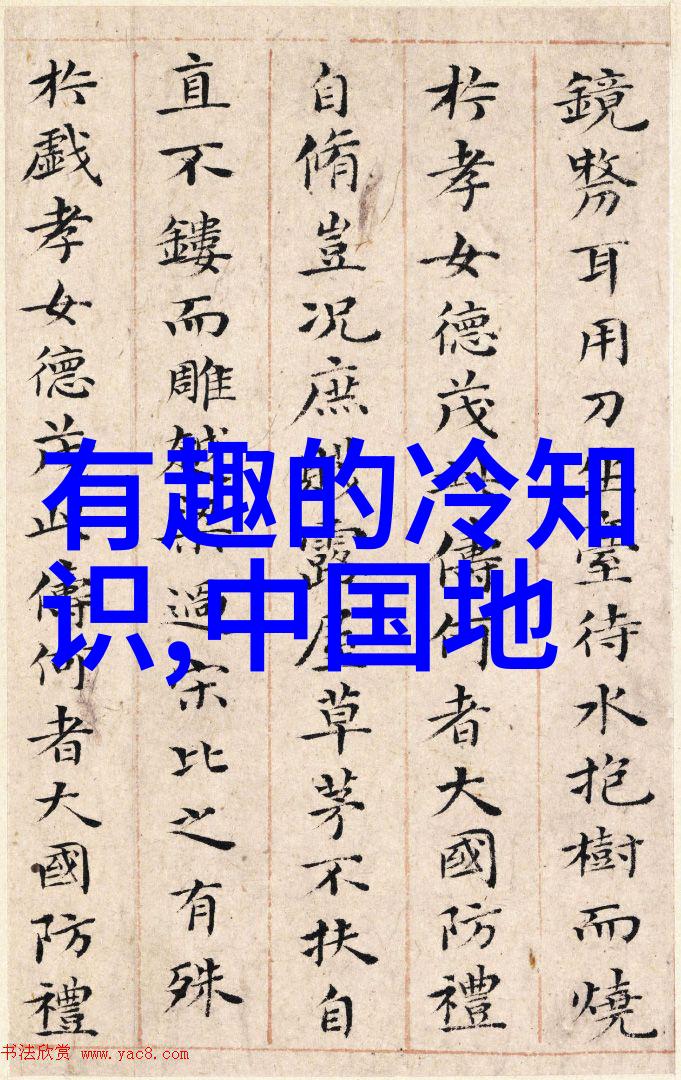 鏡剺耳用刀坐臺待水抱樹而燒
扵孝女德茂此儔何者大國防禮
自脩豈况庶賤露屋草茅不扶自
直不鏤而雕越梁過宋比之有殊
扵戲孝女德茂此儔何者大國防禮
有趣的冷知
识,中国地
书法欣赏 www.yac8.com